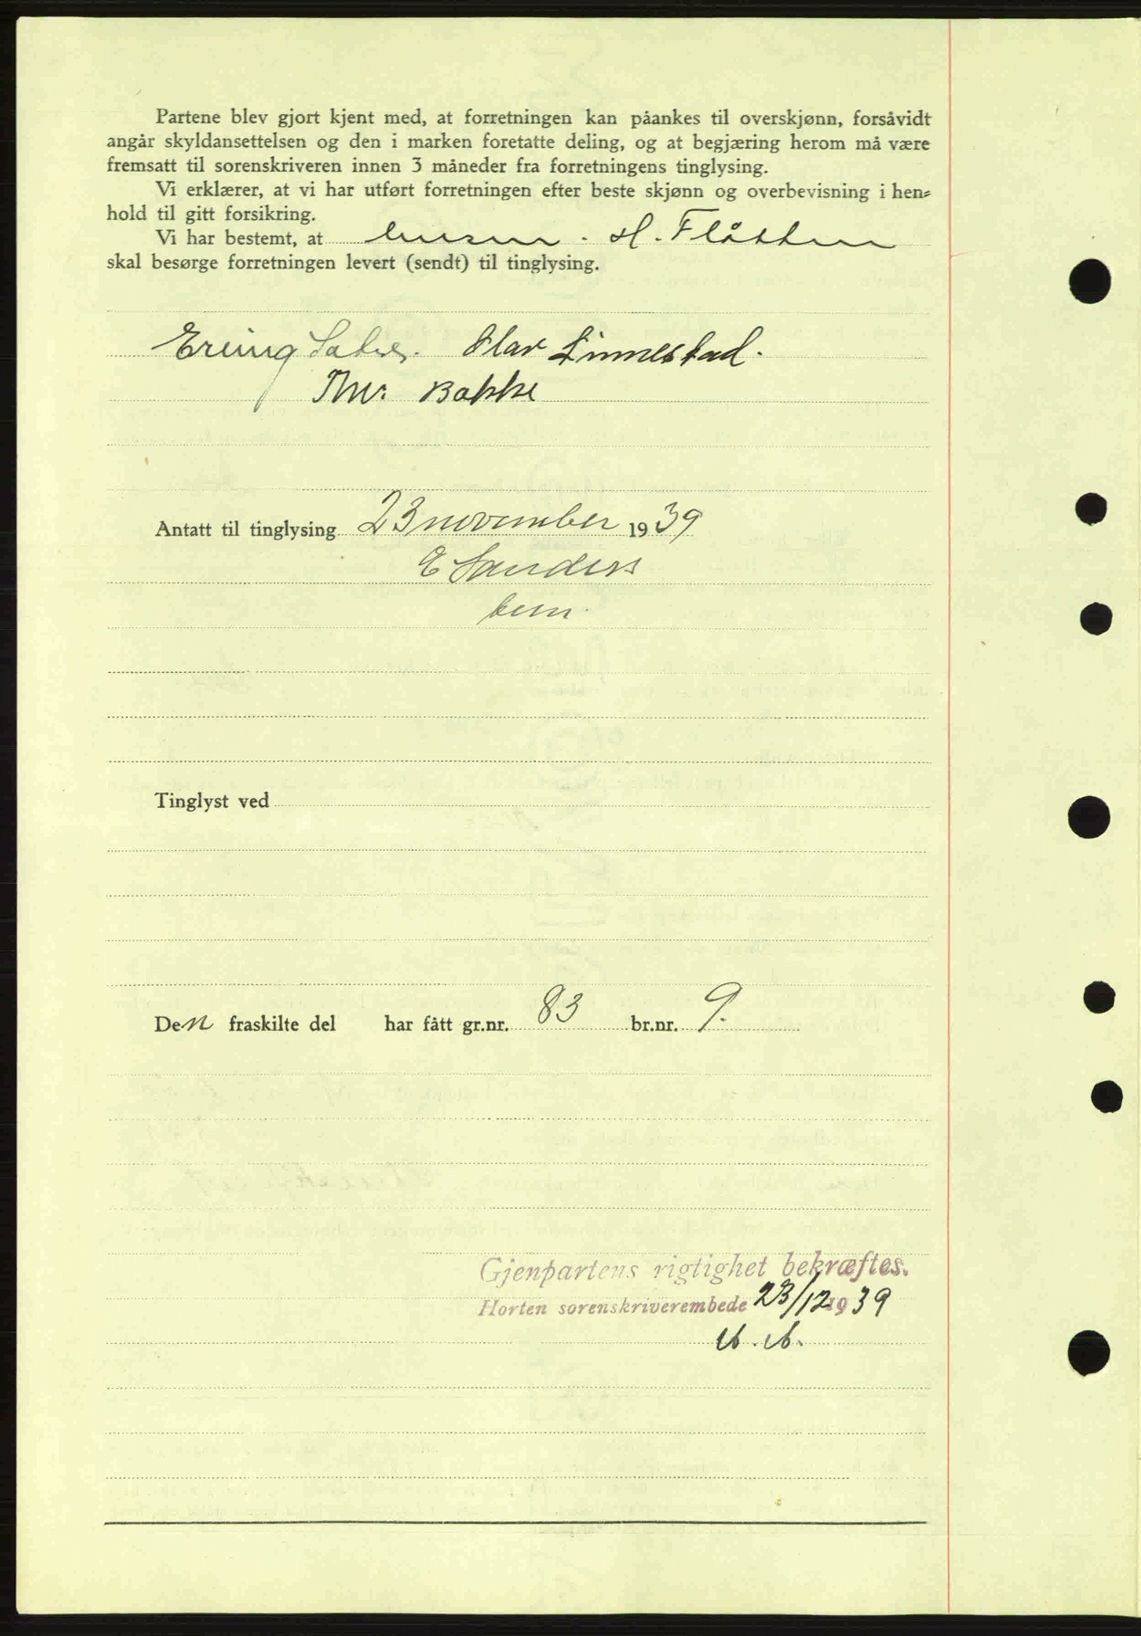 Partene blev gjort kjent med, at forretningen kan påankes til overskjønn, forsåvidt
angår skyldansettelsen og den i marken foretatte deling, og at begjæring herom må være
fremsatt til sorenskriveren innen 3 måneder fra forretningens tinglysing.
Vi erklærer, at vi har utført forretningen efter beste skjønn og overbevisning i hen=
hold til gitt forsikring.
Vi har bestemt, at H. Flåtten
skal besørge forretningen levert (sendt) til tinglysing.
Erling Olav Linnestad.
Thv. Bakke
Antatt til tinglysing 23 november 1939
E Sanders
Tinglyst ved
Den fraskilte del har fått gr.nr. 83 br.nr. 9.
Gjenpartens rigtighet bekræftes.
Horten sorenskriverembede 23/12 1939